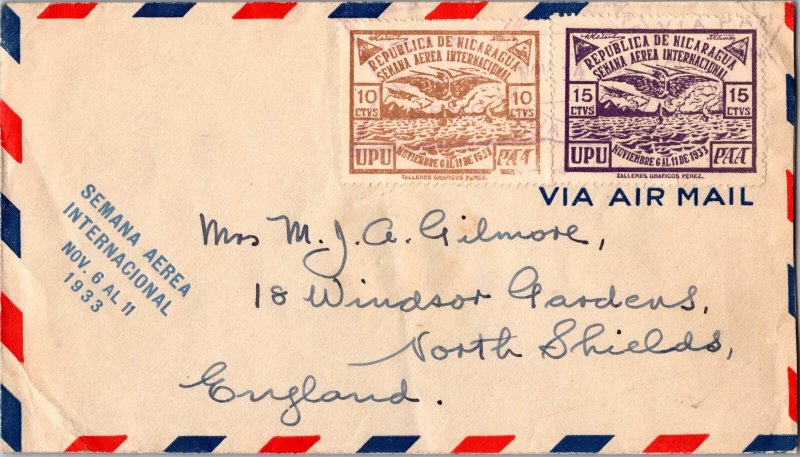 REPUBLICA DE NICARAGUA
SEMANA AEREA INTERNACIONAL
10 CTVS
10 CTVS
NOVIEMBRE 6 AL 11 DE 1933
UPU PAA
TALLERES GRAFICOS PEREZ.
REPUBLICA DE NICARAGUA
SEMANA AEREA INTERNACIONAL
15 CTVS
15 CTVS
NOVIEMBRE 6 AL 11 DE 1933
UPU PAA
TALLERES GRAFICOS PEREZ.
VIA AIR MAIL
SEMANA AEREA
INTERNACIONAL
NOV. 6 AL 11
1933
Mrs M. J. A. Gilmore,
18 Windsor Gardens,
North Shields,
England.